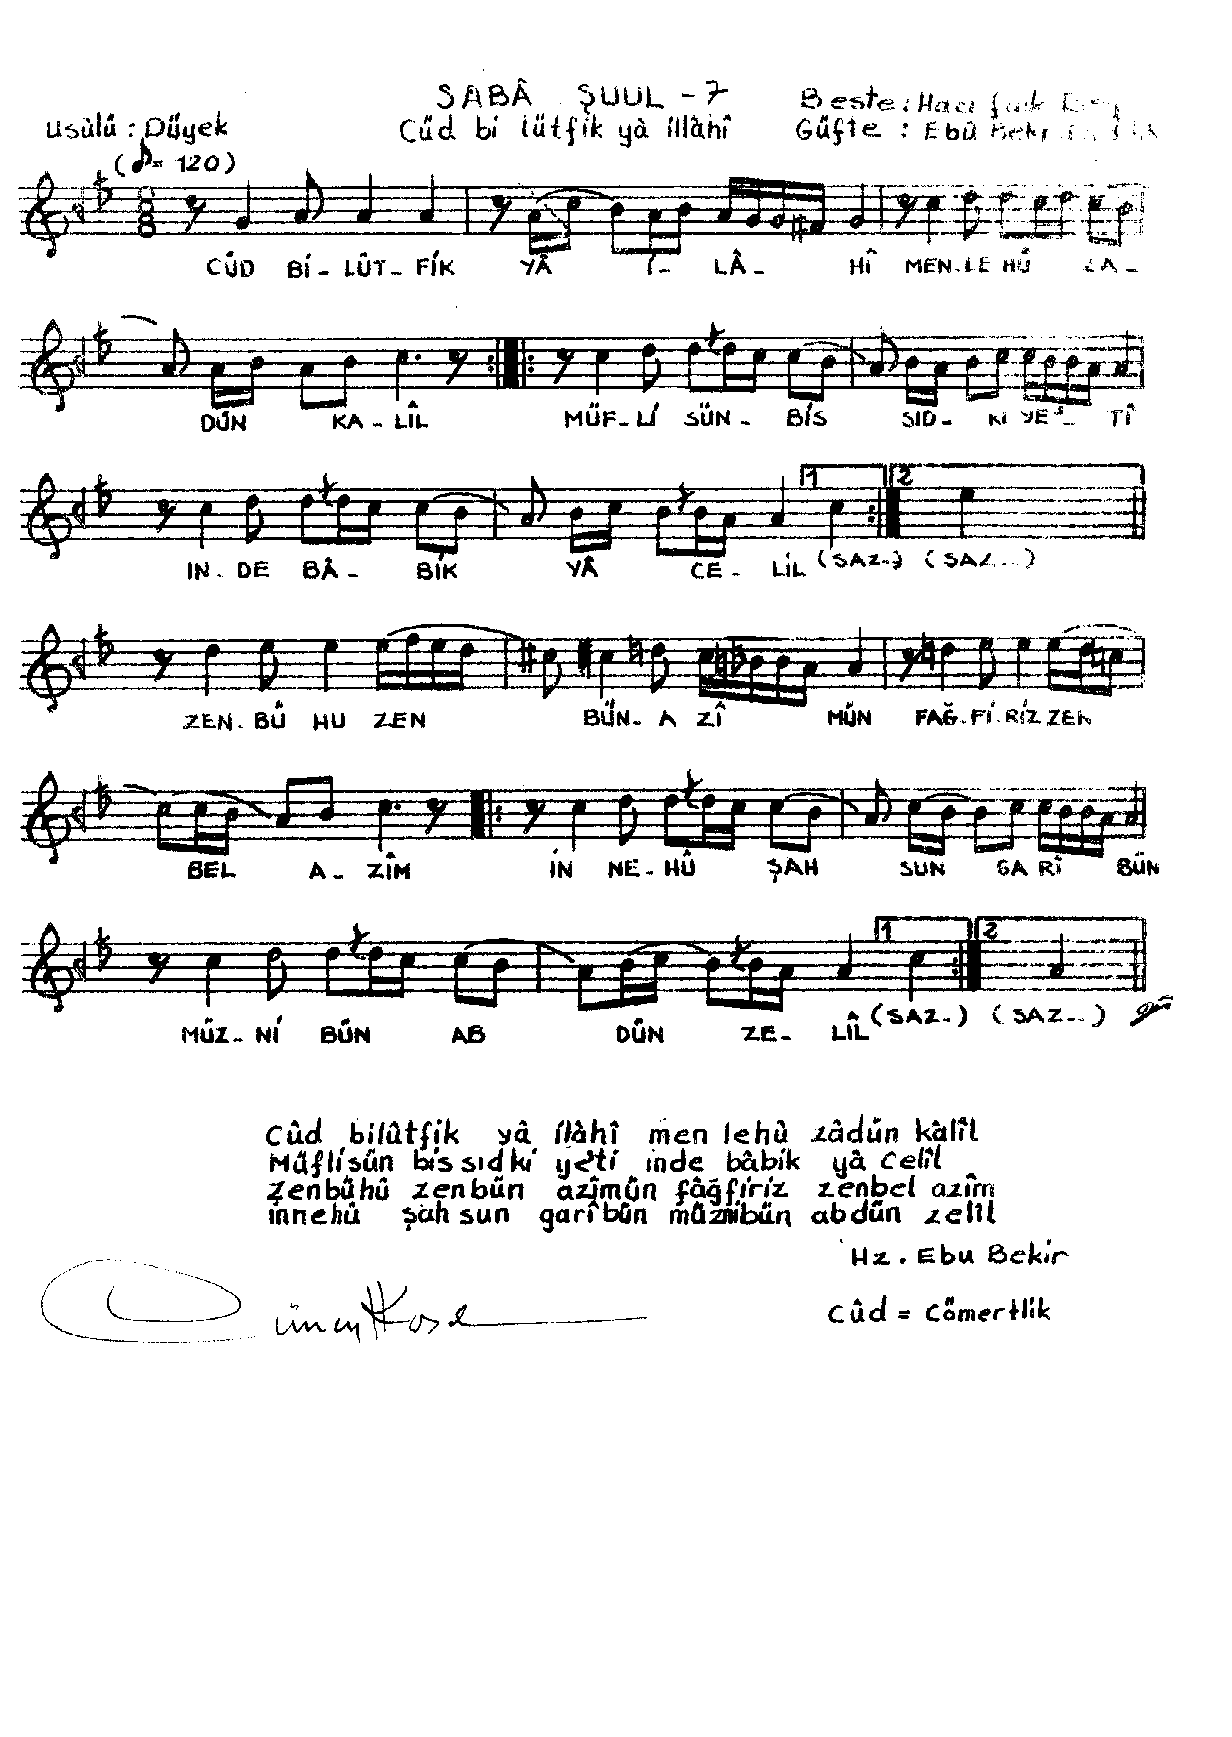 SABÂ ŞUUL - 7
Beste : Hacı Faik Bey
Usûlü : Düyek
Cûd bi lütfik yâ illâhî
Güfte : Ebû Bekr
(♪= 120)
CÛD Bİ - LÛT - FİK YÂ İ - LÂ - HÎ MEN - LE HÛ ZA -
DÜN KA - LÎL MÜF - Lİ SÜN - BİS SID - KI YE - TÎ
IN - DE BÂ - BİK YÂ CE - LİL (SAZ..) (SAZ...)
ZEN - BÜ HU ZEN BÜN - A ZÎ MÜN FAĞ - Fİ - RİZ ZEN
BEL A - ZÎM İN NE - HÛ ŞAH SUN GA RÎ BÜN
MÜZ - Nİ BÜN AB DÜN ZE - LÎL (SAZ..) (SAZ...)
Cûd bilûtfik yâ ilâhî men lehû zâdün kalîl
Müflisün bis sıdki ye'ti inde bâbik yâ Celîl
Zenbühû zenbün azîmün fâğfiriz zenbel azîm
innehû şah sun garîbün müznibün abdün zelîl
Hz. Ebu Bekir
Cûd = Cömertlik